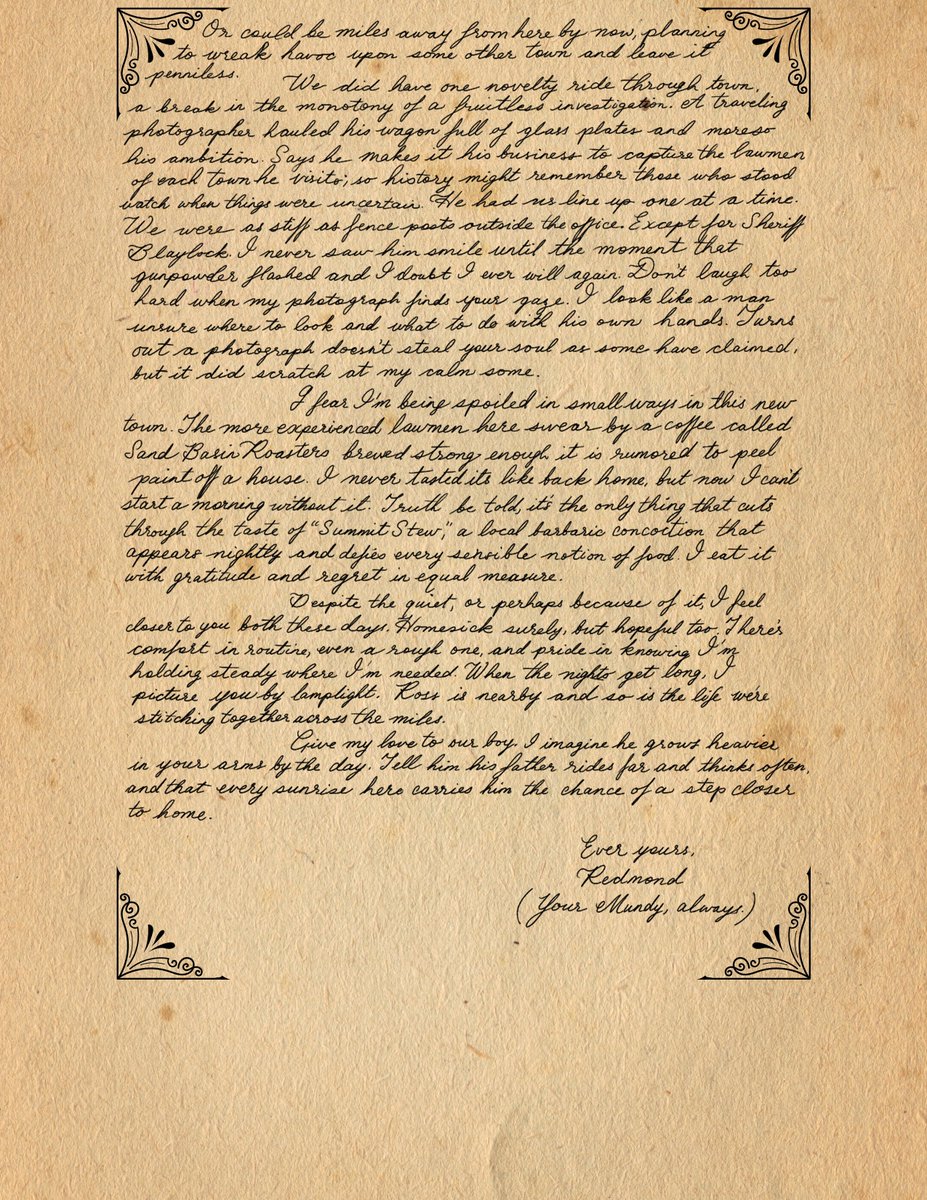 Or could be miles away from here by now, planning
to wreak havoc upon some other town and leave it
penniless.
We did have one novelty ride through town,
a break in the monotony of a fruitless investigation. A traveling
photographer hauled his wagon full of glass plates and moreso
his ambition. Says he makes it his business to capture the lawmen
of each town he visits; so history might remember those who stood
watch when things were uncertain. He had us line up one at a time.
We were as stiff as fence posts outside the office. Except for Sheriff
Blaylock. I never saw him smile until the moment that
gunpowder flashed and I doubt I ever will again. Don't laugh too
hard when my photograph finds your gaze. I look like a man
unsure where to look and what to do with his own hands. Turns
out a photograph doesn't steal your soul as some have claimed,
but it did scratch at my calm some.
I fear I'm being spoiled in small ways in this new
town. The more experienced lawmen here swear by a coffee called
Sand Basin Roasters brewed strong enough it is rumored to peel
paint off a house. I never tasted its like back home, but now I can't
start a morning without it. Truth be told, it's the only thing that cuts
through the taste of "Summit Stew," a local barbaric concoction that
appears nightly and defies every sensible notion of food. I eat it
with gratitude and regret in equal measure.
Despite the quiet, or perhaps because of it, I feel
closer to you both these days. Homesick surely, but hopeful too. There's
comfort in routine, even a rough one, and pride in knowing I'm
holding steady where I'm needed. When the nights get long, I
picture you by lamplight. Ross is nearby and so is the life we're
stitching together across the miles.
Give my love to our boy. I imagine he grows heavier
in your arms by the day. Tell him his father rides far and thinks often,
and that every sunrise here carries him the chance of a step closer
to home.
Ever yours,
Redmond
(Your Mundy, always.)